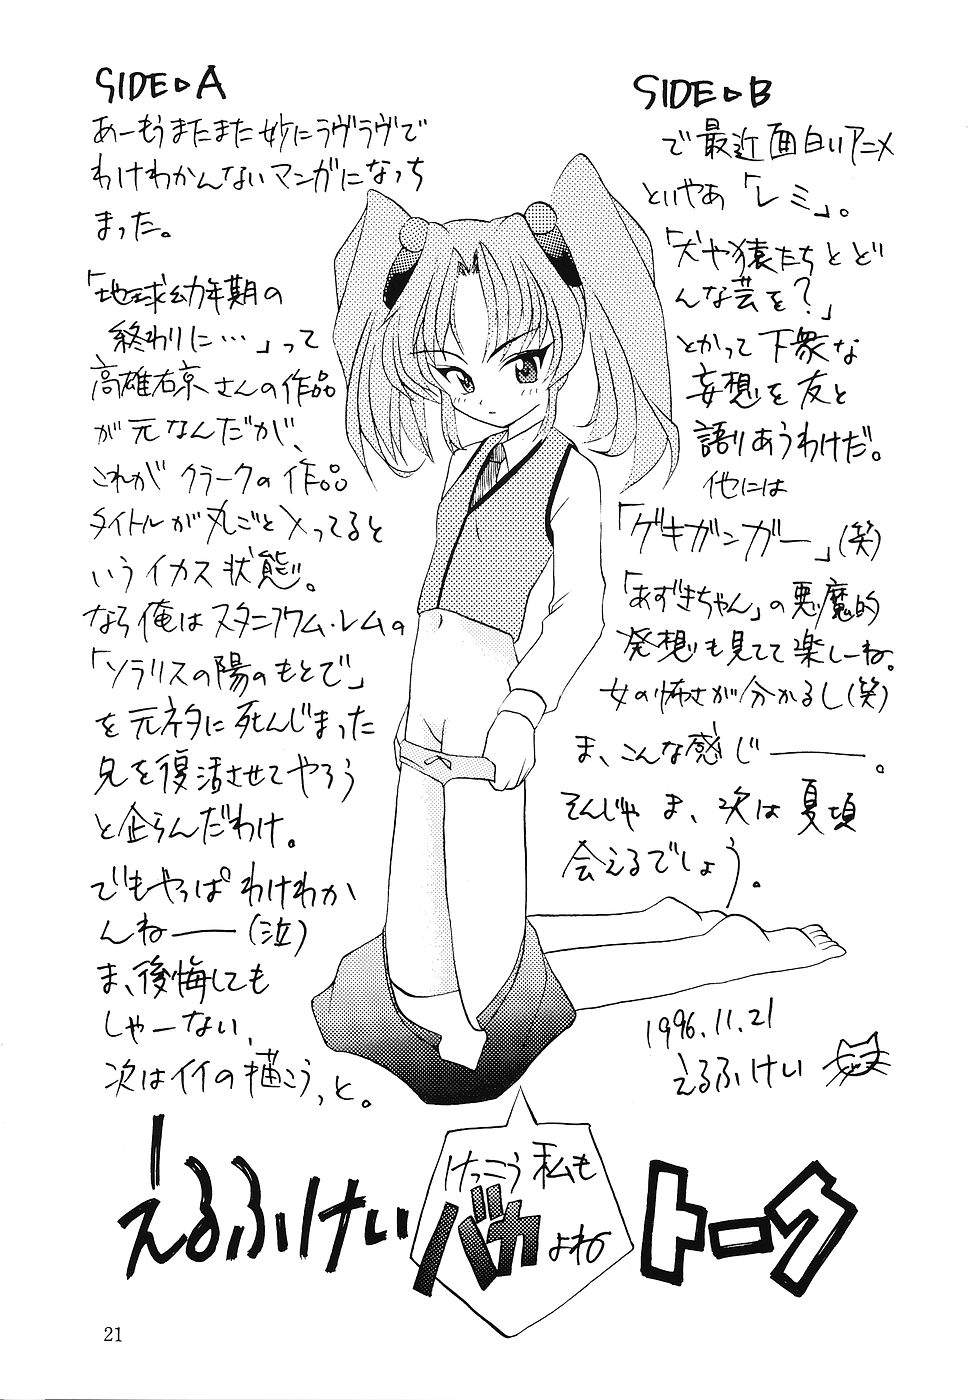 SIDE▷A
あーもうまたまた妙にラヴラヴで
わけわかんないマンガになっち
まった。
「地球幼年期の
終わりに…」って
高雄右京さんの作品
が元なんだが、
これがクラークの作品
タイトルが丸ごと入ってると
いうイカス状態。
なら俺はスタニフワム・レムの
「ソラリスの陽のもとで」
を元ネタに死んじまった
兄を復活させてやろう
と企らんだわけ。
でもやっぱわけわか
んねー(泣)
ま、後悔しても
しゃーない、
次はイイの描こうっと。
SIDE▷B
で最近面白いアニメ
といやあ「レミ」。
「犬や猿たちとど
んな芸を?」
とかって下衆な
妄想を友と
語りあうわけだ。
他には
「ゲキガンガー」(笑)
「あずきちゃん」の悪魔的
発想も見てて楽しーね。
女の怖さが分かるし(笑)
ま、こんな感じ――。
そんじゃま、次は夏頃
会えるでしょう。
1996.11.21
えるふけい
けっこう私も
バカよね
えるふけい バカ トーク
21